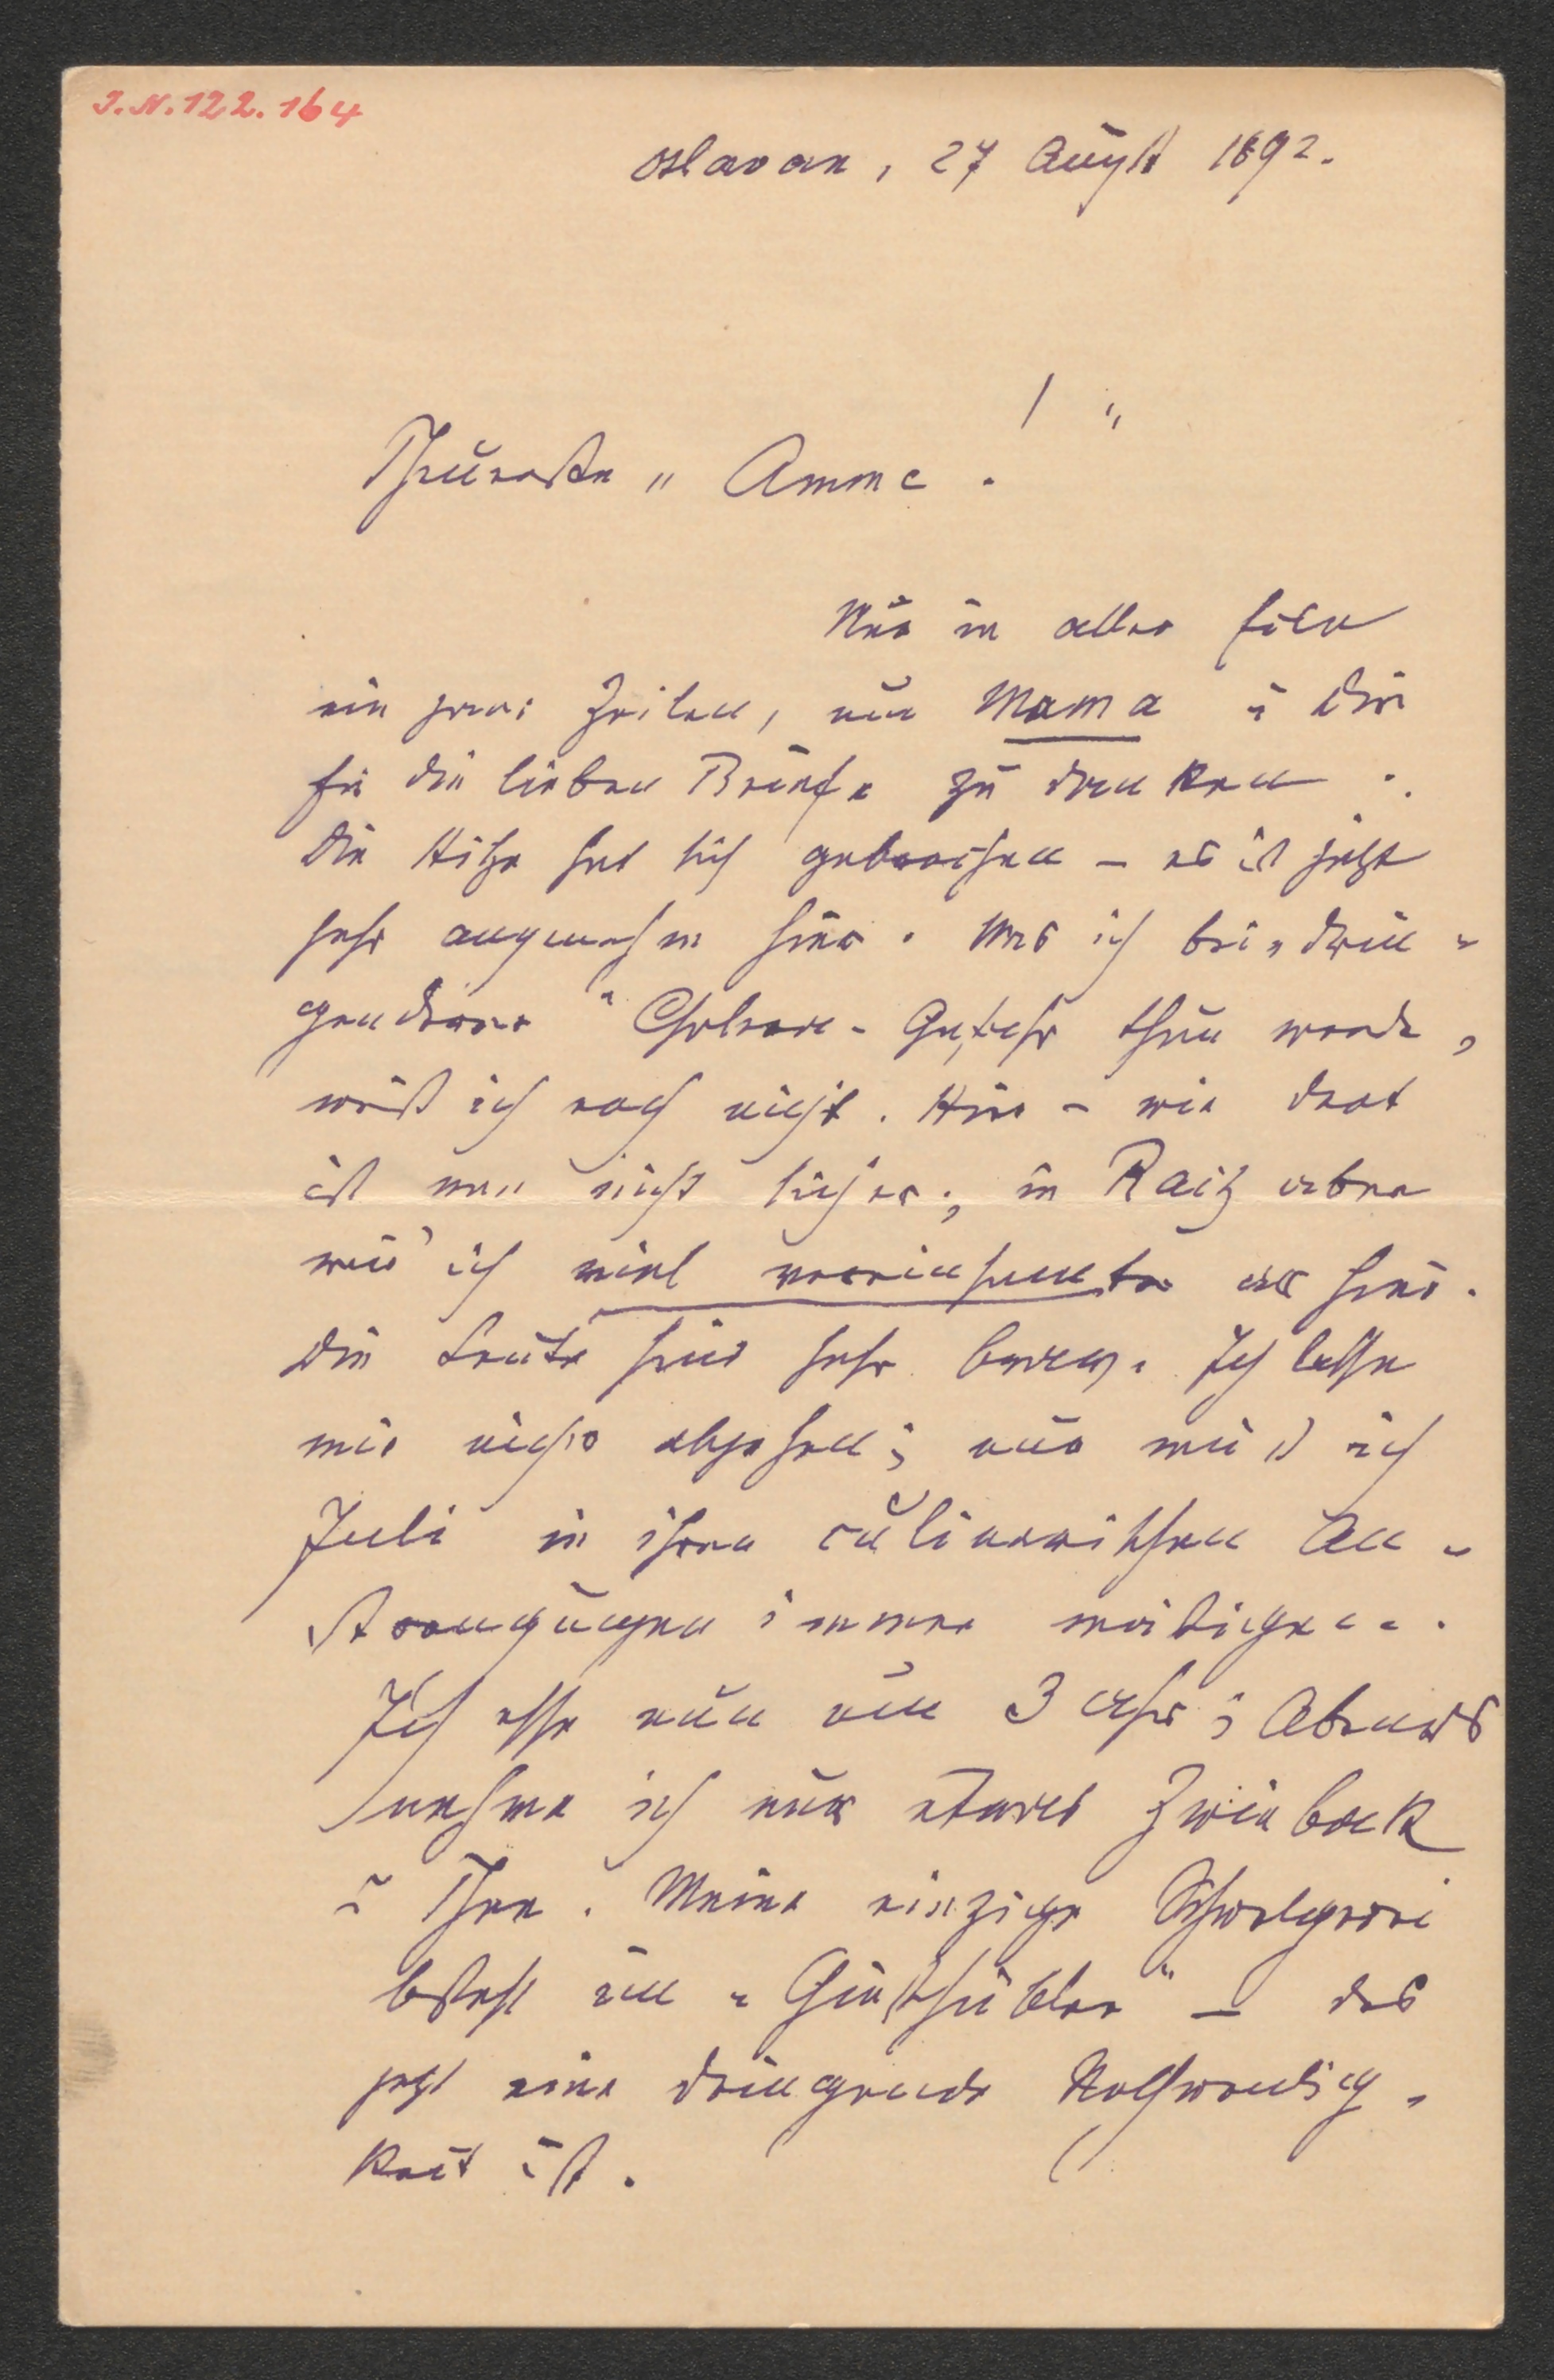 I.N. 122.164
Oslavan, 27 August 1892.
Theuerste „Amme!"
Nur in aller Eile
ein paar Zeilen, um Mama u Dir
für die lieben Briefe zu danken.
Die Hitze hat sich gebrochen – es ist jetzt
sehr angenehm hier. Was ich bei „drin-
genderer" Cholera-Gefahr thun werde,
weiß ich noch nicht. Hier – wie dort
ist man nicht sicher; in Raitz aber
wär' ich viel vereinsamter als hier.
Die Leute sind sehr brav. Ich lasse
mir nichts abgehen; nur muß ich
Juli in ihren culinarischen An-
strengungen immer mäßigen.
Ich esse nun um 3 Uhr; Abends
nehme ich nur etwas Zwieback
u Thee. Meine einzige Schwelgerei
besteht in „Gießhübler" – das
jetzt eine dringende Nothwendig-
keit ist.